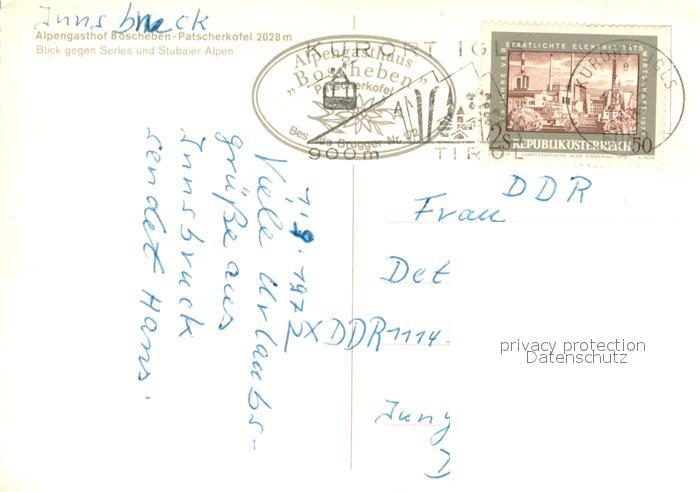 Innsbruck
Alpengasthof Boscheben - Patscherkofel 2028 m
Blick gegen Serles und Stubaier Alpen
KURORT IGLS
Alpengasthaus
"Boscheben"
Patscherkofel
Brugger
900m
TIROL
STAATLICHTE ELEKTRIZITÄTS
2S 50
REPUBLIK ÖSTERREICH
KURORT IGLS
1.9.1972
Viele Urlaubs-
grüße aus
Innsbruck
sendet Hans.
DDR
Frau
Det
X DDR 1114
Jung
privacy protection
Datenschutz